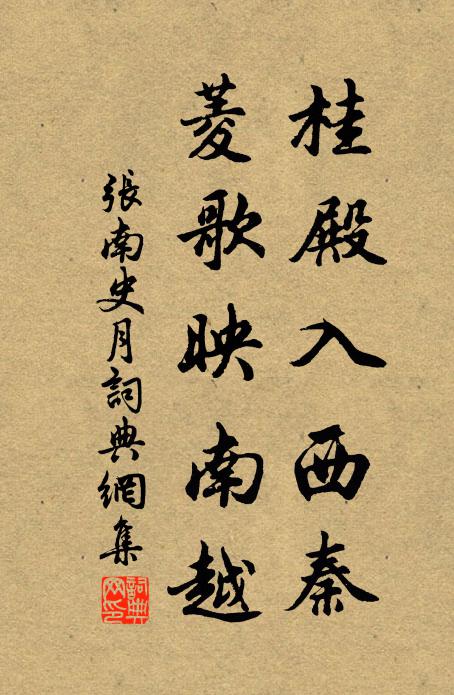 桂殿入西秦
菱歌映南越
張南史月詞典網集
詞典网印